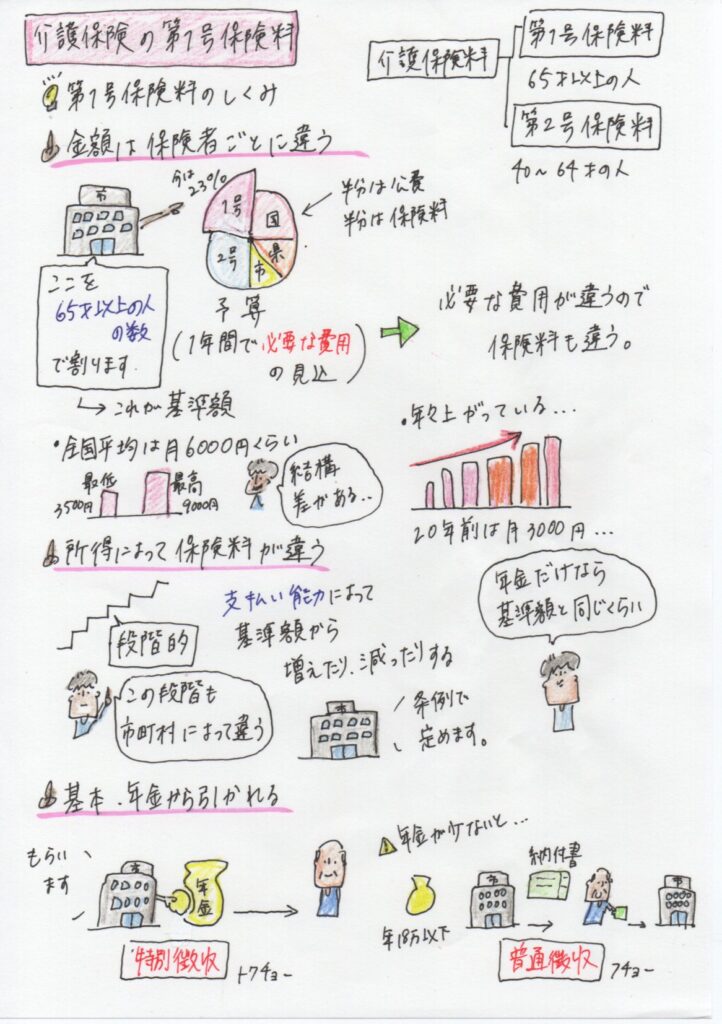 介護保険の第1号保険料
介護保険料
第1号保険料
65才以上の人
第2号保険料
40～64才の人
第1号保険料のしくみ
金額は保険者ごとに違う
市
今は
23%
1号
国
県
市
2号
半分は公費
半分は保険料
予算
(1年間で必要な費用
の見込)
ここを
65才以上の人
の数
で割ります.
これが基準額
必要な費用が違うので
保険料も違う。
・全国平均は月6000円くらい
最低
3500円
最高
9000円
結構
差がある..
・年々上がっている...
20年前は月3000円...
所得によって保険料が違う
段階的
この段階も
市町村によって違う
支払い能力によって
基準額から
増えたり、減ったりする
市
条例で
定めます。
年金だけなら
基準額と同じくらい
基本、年金から引かれる
もらい
ます
市
年金
特別徴収
トクチョー
年金が少ないと...
年18万以下
市
納付書
市
普通徴収
フチョー